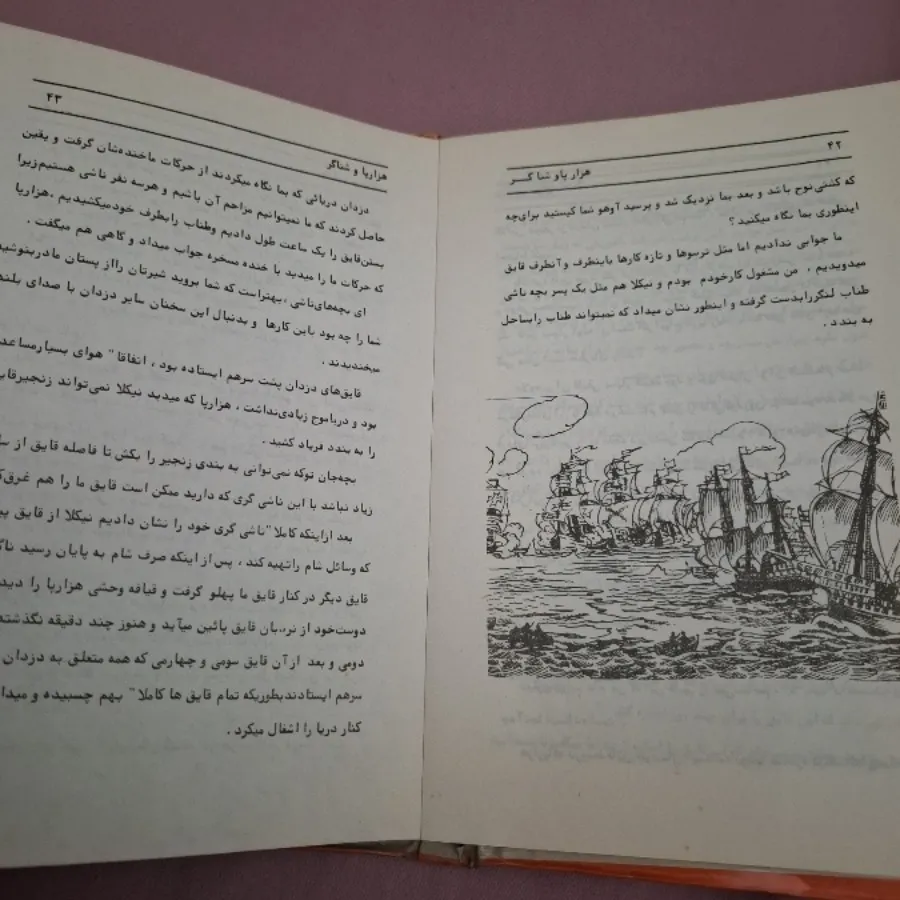 ۴۲
هزار پاو شنا گـــر
که کشتی‌نوح باشد و بعد بما نزدیک شد و پرسید آوهو شما کیستید برای‌چه
اینطوری بما نگاه میکنید ؟
ما جوابی ندادیم اما مثل ترسوها و تازه کارها باینطرف وآنطرف قایق
میدویدیم ، من مشغول کارخودم بودم و نیکلا هم مثل یک پسر بچه ناشی
طناب لنگررابدست گرفته و اینطور نشان میداد که نمیتواند طناب رابساحل
به بندد .
۴۳
هزارپا و شناگر
دزدان دریائی که بما نگاه میکردند از حرکات ماخنده‌شان گرفت و یقین
حاصل کردند که ما نمیتوانیم مزاحم آن باشیم و هرسه نفر ناشی هستیم‌زیرا
بستن‌قایق را یک ساعت طول دادیم وطناب رابطرف خودمیکشیدیم .هزارپا
که حرکات ما را میدید با خنده مسخره جواب میداد و گاهی هم میگفت .
ای بچه‌های‌ناشی ،بهتراست که شما بروید شیرتان رااز پستان مادربنوشید
شما را چه بود باین کارها و بدنبال این سخنان سایر دزدان با صدای بلند
میخندیدند .
قایق‌های دزدان پشت سرهم ایستاده بود ، اتفاقا" هوای بسیارمساعد
بود و دریاموج زیادی‌نداشت ، هزارپا که میدید نیکلا نمی‌تواند زنجیرقایق
را به بندد فریاد کشید .
بچه‌جان توکه نمی‌توانی به بندی زنجیر را بکش تا فاصله قایق از
زیاد نباشد با این ناشی گری که دارید ممکن است قایق ما را هم غرق
بعد ازاینکه کاملا"ناشی گری خود را نشان دادیم نیکلا از قایق
که وسائل شام راتهیه کند ، پس از اینکه صرف شام به پایان رسید
قایق دیگر در کنار قایق ما پهلو گرفت و قیافه وحشی هزارپا را
دوست‌خود از نردبان قایق پائین میآید و هنوز چند دقیقه نگذشته
دومی و بعد ازآن قایق سومی و چهارمی که همه متعلق به دزدان
سرهم ایستادندبطوریکه تمام قایق ها کاملا" بهم چسبیده و
کنار دریا را اشغال میکرد .